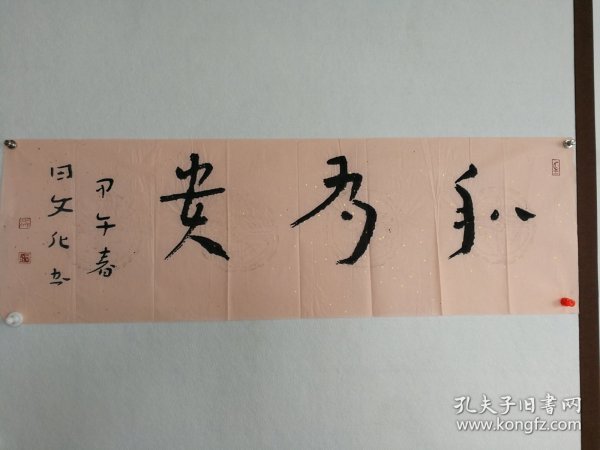 和为贵
甲午春
田文化书
孔夫子旧书网
www.kongfz.com